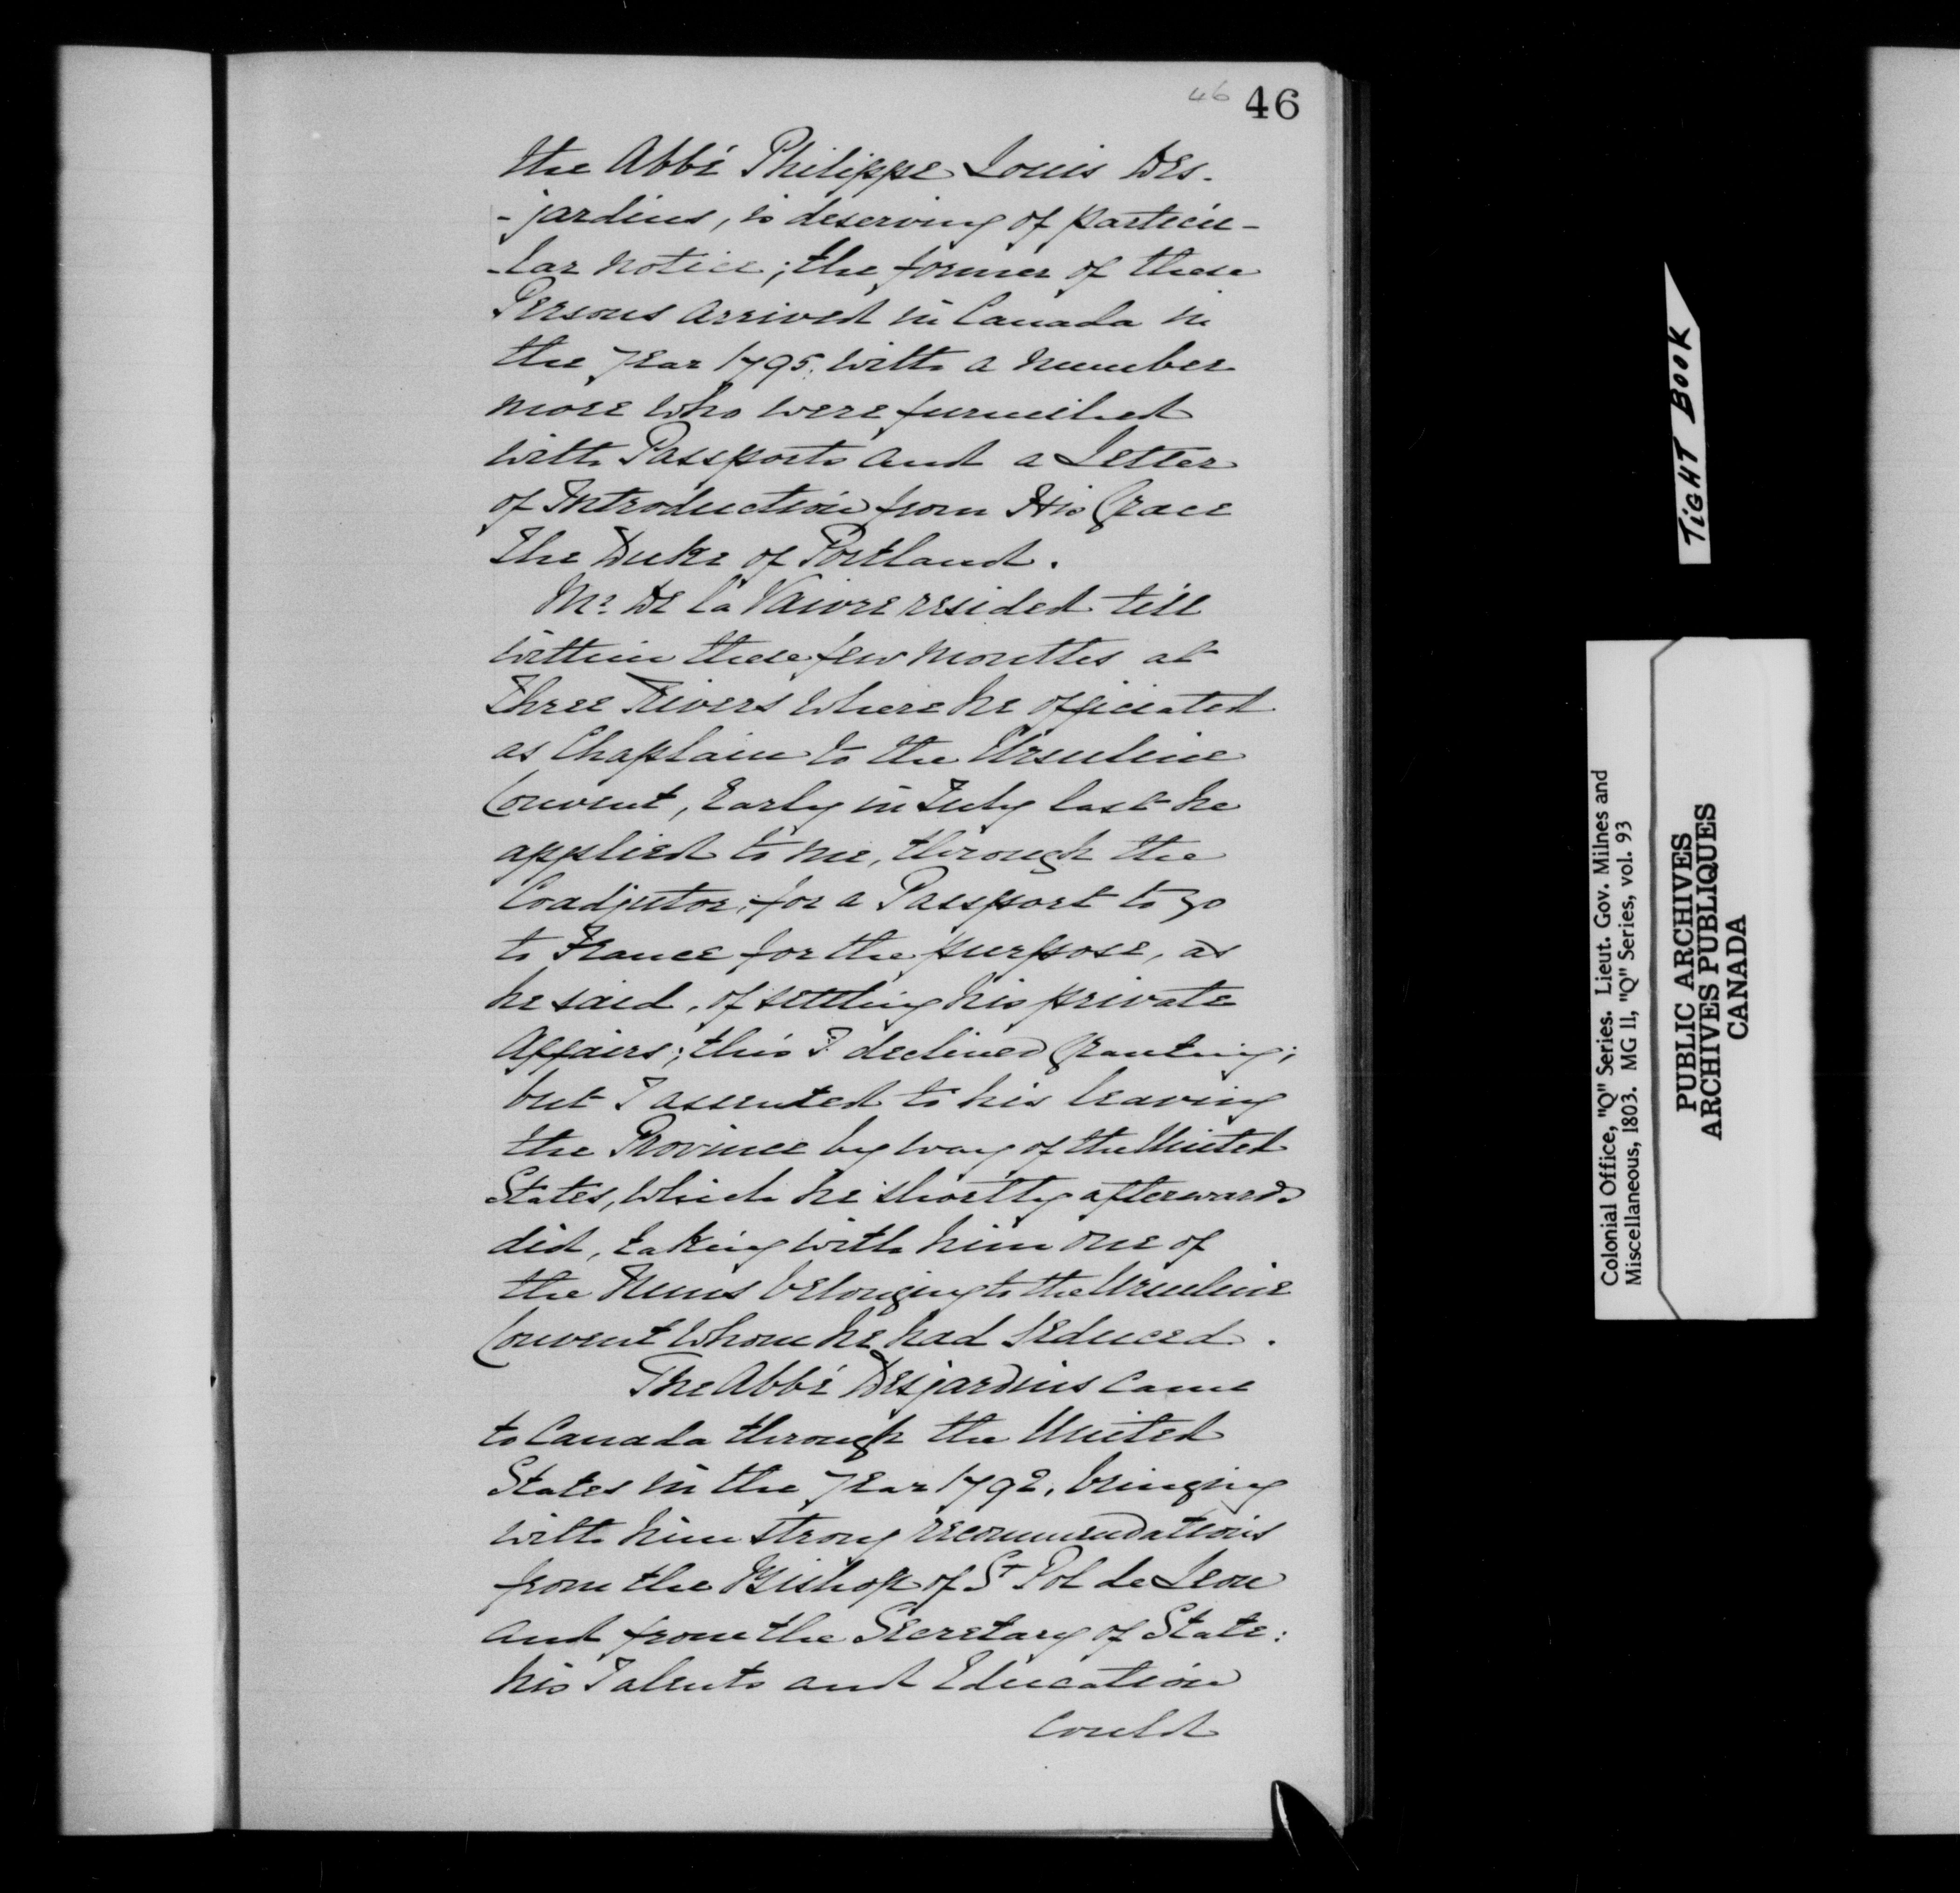 46 46
the Abbé Philippe Louis Des-
-jardins, is deserving of particu-
-lar notice; the former of these
Persons arrived in Canada in
the year 1795. with a number
more who were furnished
with Passports and a Letter
of Introduction from His Grace
The Duke of Portland.
Mr. De la Vaivre resided till
within these few months at
Three Rivers where he officiated
as Chaplain to the Ursuline
Convent, Early in July last he
applied to me, through the
Coadjutor, for a Passport to go
to France for the purpose, as
he said, of settling his private
Affairs; this I declined Granting;
but I assented to his leaving
the Province by way of the United
States, which he shortly afterwards
did, taking with him one of
the Nuns belonging to the Ursuline
Convent whom he had seduced.
The Abbé Desjardins came
to Canada through the United
States in the year 1792, bringing
with him strong recommendations
from the Bishop of St Pol de Leon
and from the Secretary of State:
his Talents and Education
could
TIGHT BOOK
Colonial Office, "Q" Series. Lieut. Gov. Milnes and
Miscellaneous, 1803. MG 11, "Q" Series, vol. 93
PUBLIC ARCHIVES
ARCHIVES PUBLIQUES
CANADA